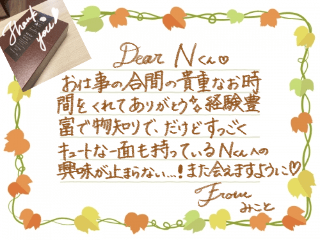 thank you♡
Dear Nくん♡
お仕事の合間の貴重なお時
間をくれてありがとう 経験豊
富で物知りで、だけどすっごく
キュートな一面も持っているNくんへの
興味が止まらない…! また会えますように♡
From
みこと